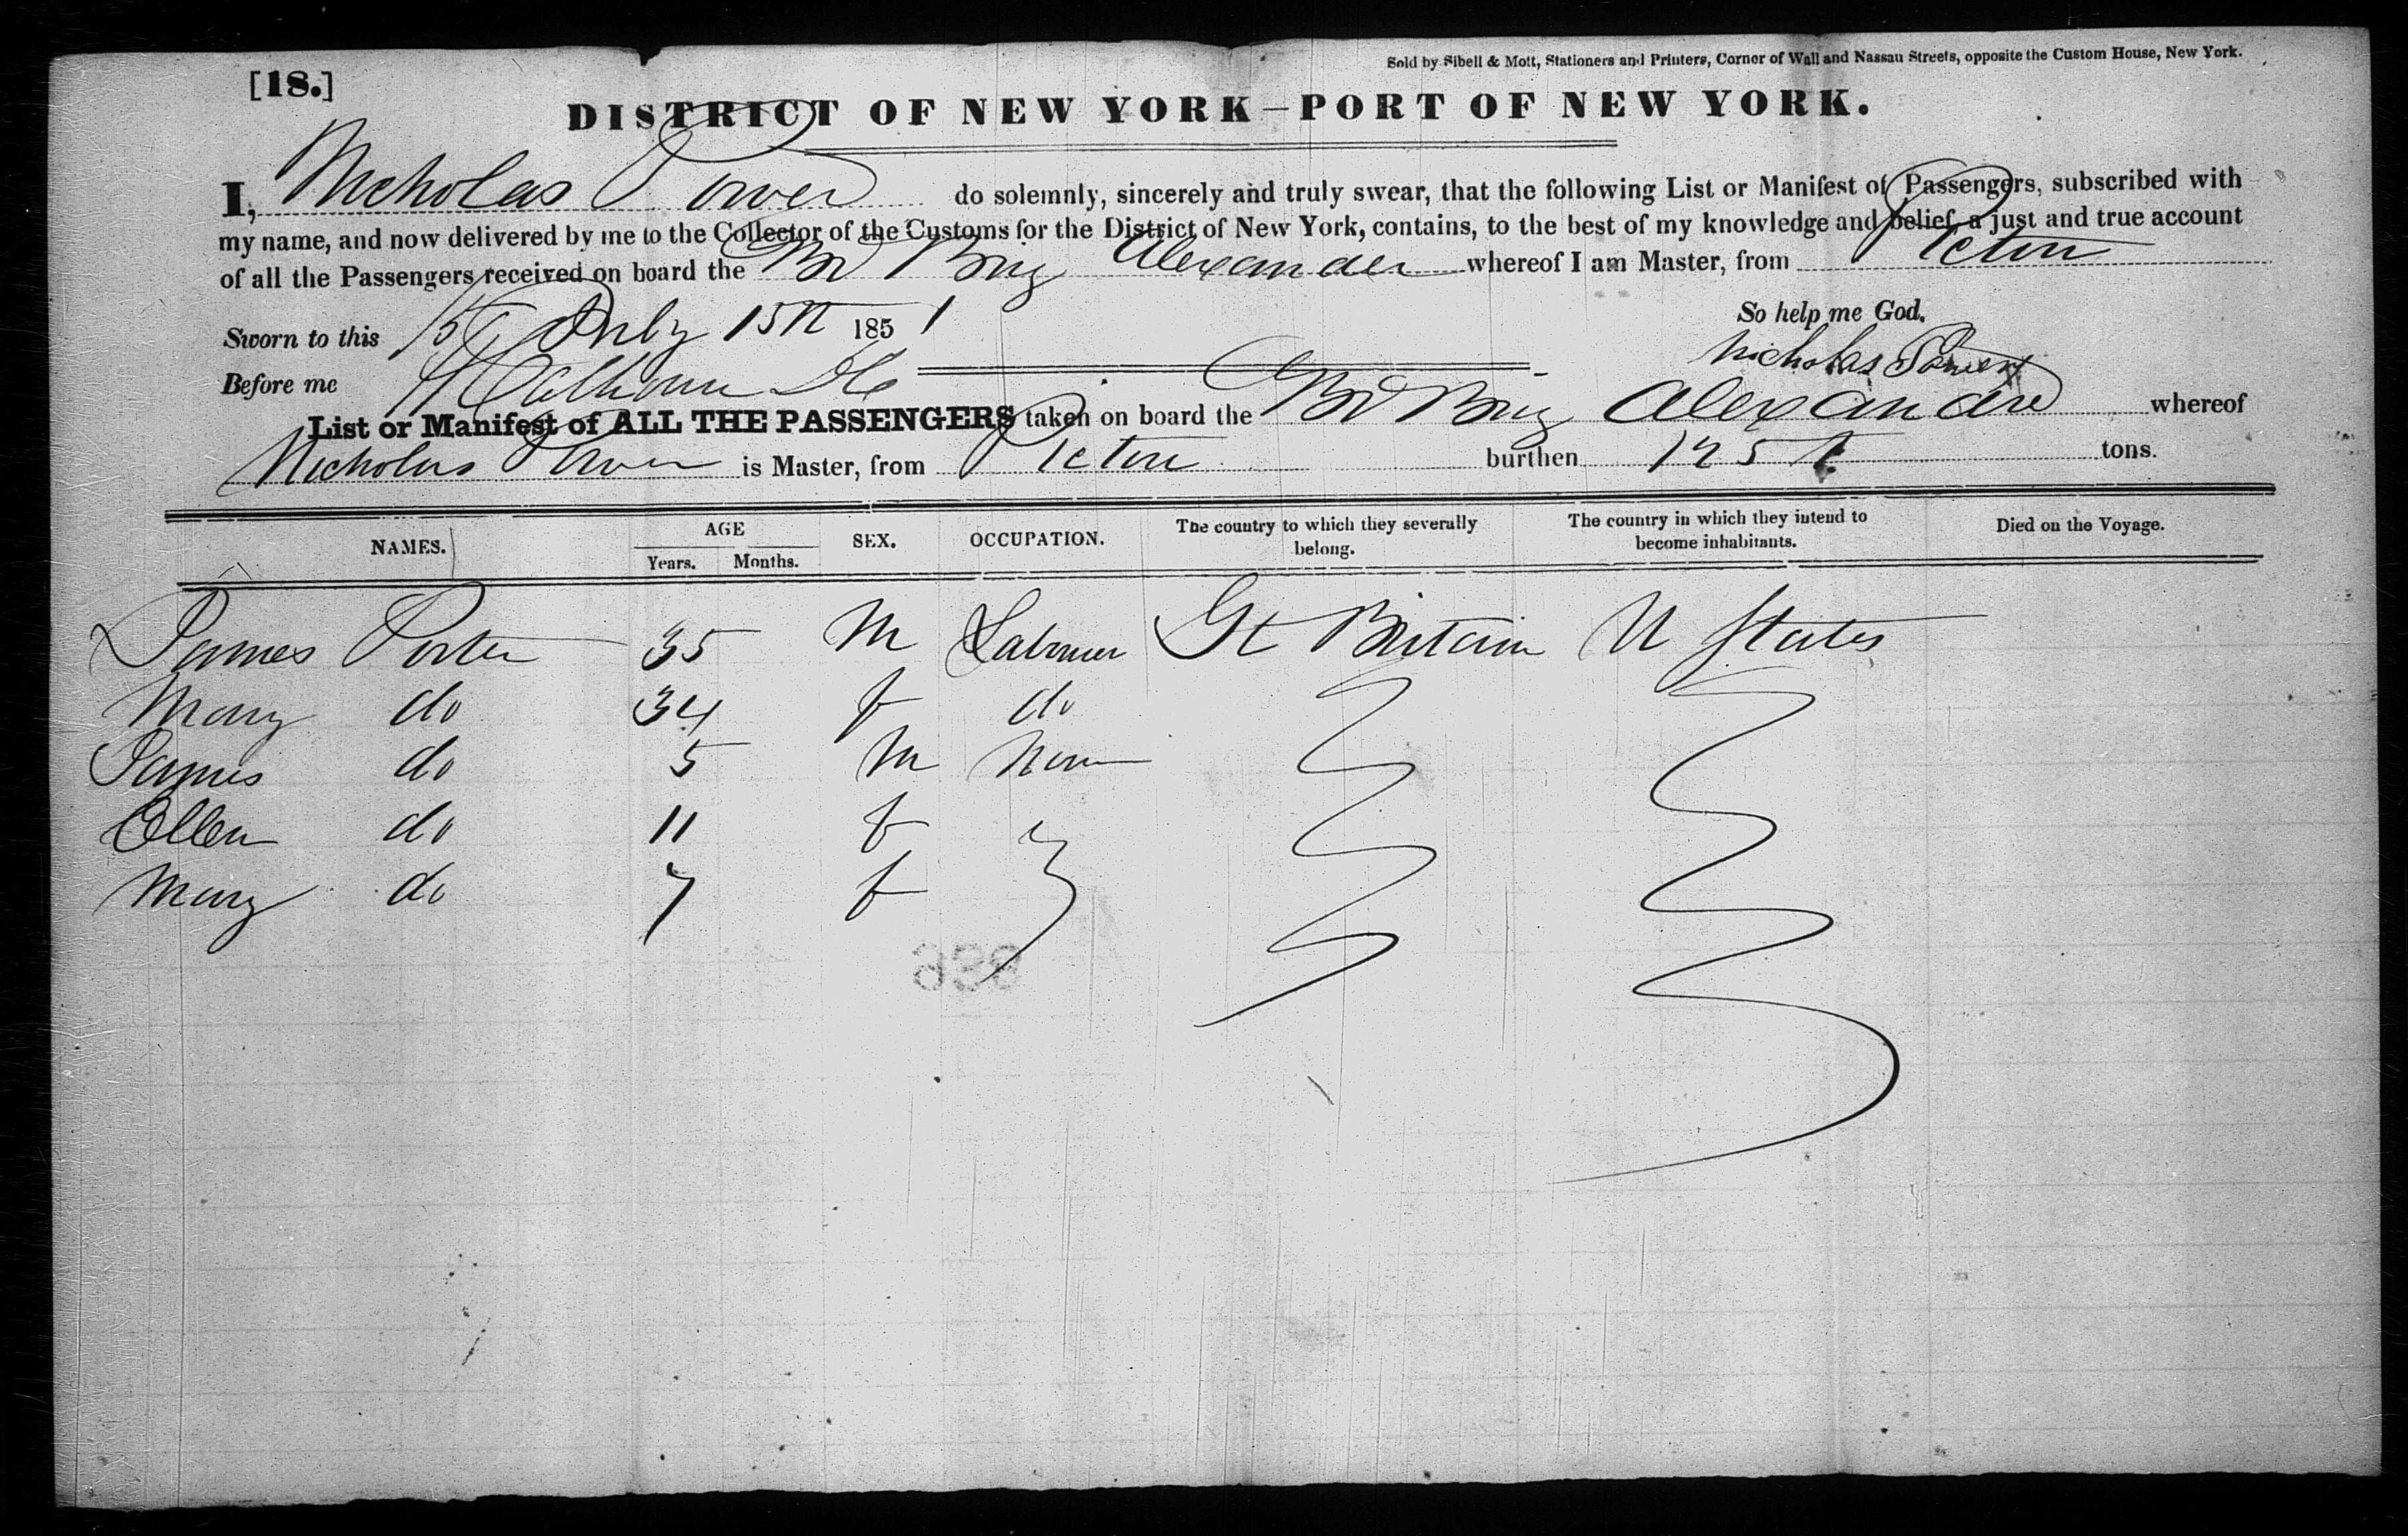 Sold by Sibell & Mott, Stationers and Printers, Corner of Wall and Nassau Streets, opposite the Custom House, New York.
[18.]
DISTRICT OF NEW YORK—PORT OF NEW YORK.
I, Nicholas Power do solemnly, sincerely and truly swear, that the following List or Manifest of Passengers, subscribed with
my name, and now delivered by me to the Collector of the Customs for the District of New York, contains, to the best of my knowledge and belief, a just and true account
of all the Passengers received on board the Br Brig Alexander whereof I am Master, from Pictou
So help me God.
Sworn to this July 15th 1851
Nicholas Power
Before me Calhoun
List or Manifest of ALL THE PASSENGERS taken on board the Br Brig Alexandre whereof
Nicholas Power is Master, from Pictou burthen 125 tons.
NAMES. AGE Years. Months. SEX. OCCUPATION. The country to which they severally belong. The country in which they intend to become inhabitants. Died on the Voyage.
James Porter 35 M Labourer Gt Britain U States
Mary do 34 f do
James do 5 M None
Ellen do 11 f
Mary do 7 f